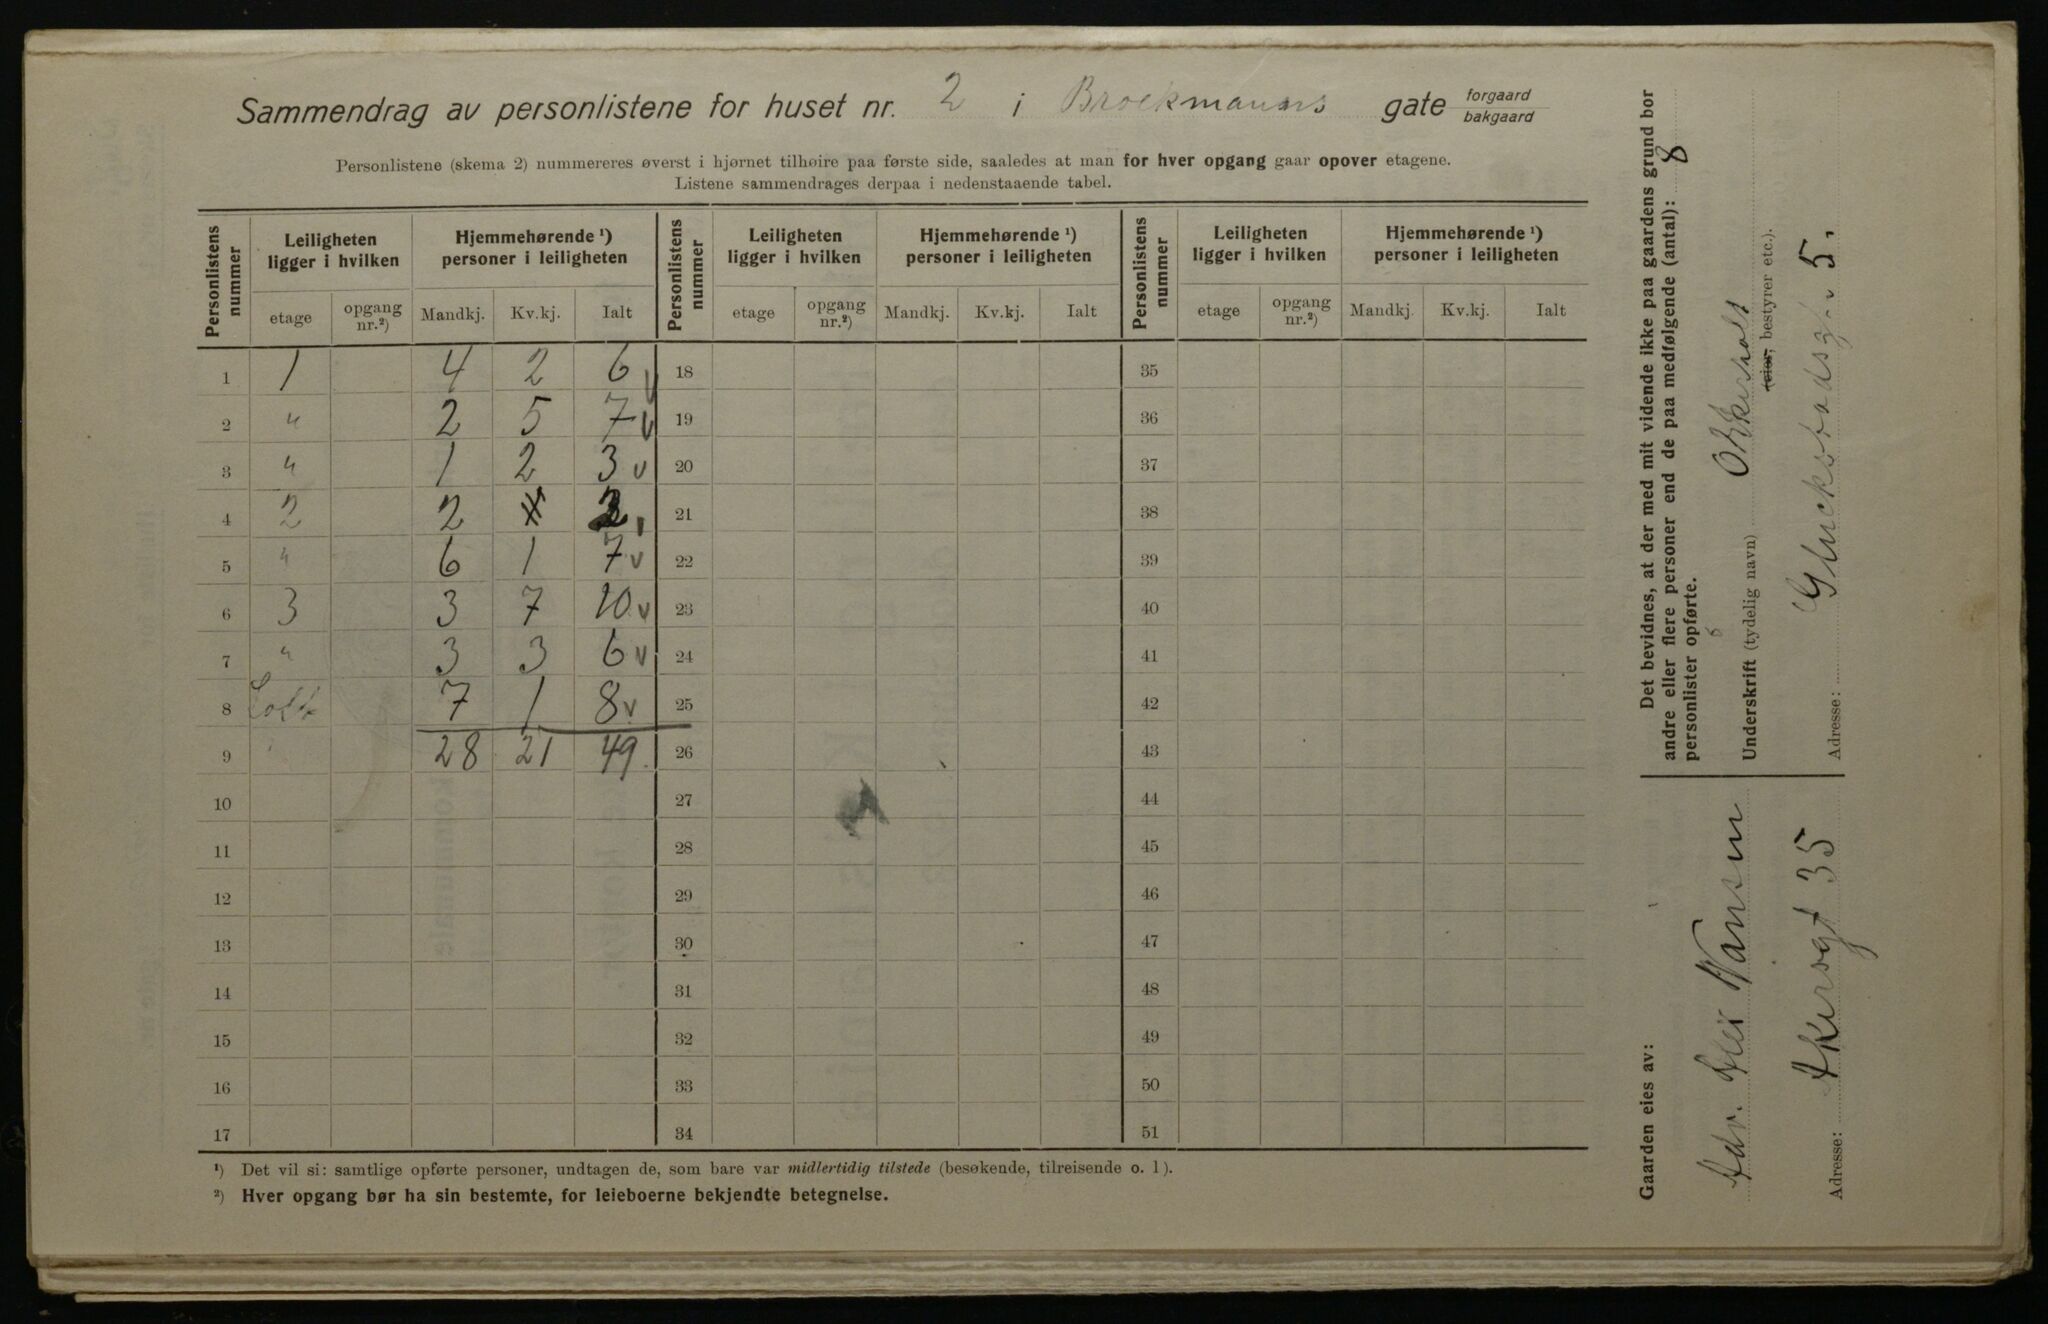 Sammendrag av personlistene for huset nr. 2 i Brockmanns gate forgaard bakgaard
Personlistene (skema 2) nummereres øverst i hjørnet tilhøire paa første side, saaledes at man for hver opgang gaar opover etagene.
Listene sammendrages derpaa i nedenstaaende tabel.
Personlistens nummer | Leiligheten ligger i hvilken | Hjemmehørende ¹) personer i leiligheten | Personlistens nummer | Leiligheten ligger i hvilken | Hjemmehørende ¹) personer i leiligheten | Personlistens nummer | Leiligheten ligger i hvilken | Hjemmehørende ¹) personer i leiligheten
etage | opgang nr.²) | Mandkj. | Kv.kj. | Ialt | etage | opgang nr.²) | Mandkj. | Kv.kj. | Ialt | etage | opgang nr.²) | Mandkj. | Kv.kj. | Ialt
1 1 4 2 6 v 18 35
2 " 2 5 7 v 19 36
3 " 1 2 3 v 20 37
4 2 2 2 21 38
5 " 6 1 7 v 22 39
6 3 3 7 10 v 23 40
7 " 3 3 6 v 24 41
8 Loft 7 1 8 v 25 42
9 28 21 49 26 43
10 27 44
11 28 45
12 29 46
13 30 47
14 31 48
15 32 49
16 33 50
17 34 51
¹) Det vil si: samtlige opførte personer, undtagen de, som bare var midlertidig tilstede (besøkende, tilreisende o. l).
²) Hver opgang bør ha sin bestemte, for leieboerne bekjendte betegnelse.
Det bevidnes, at der med mit vidende ikke paa gaardens grund bor
andre eller flere personer end de paa medfølgende (antal): 8
personlister opførte.
Underskrift (tydelig navn)
(eier, bestyrer etc.).
Adresse: Glucksstadsg. 5.
Gaarden eies av:
Adv. Nansen
Adresse: Akersgt 35